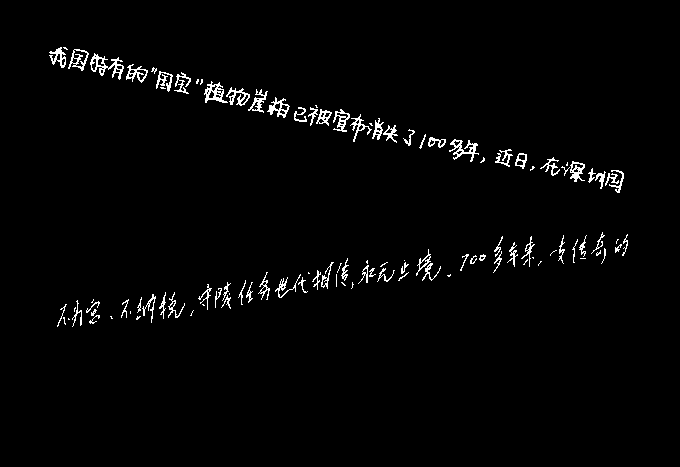 我国特有的"国宝"植物崖柏已被宣布消失了100多年,近日,在深圳国
不为官、不纳税,守陵任务世代相传,永无止境。700多年来,